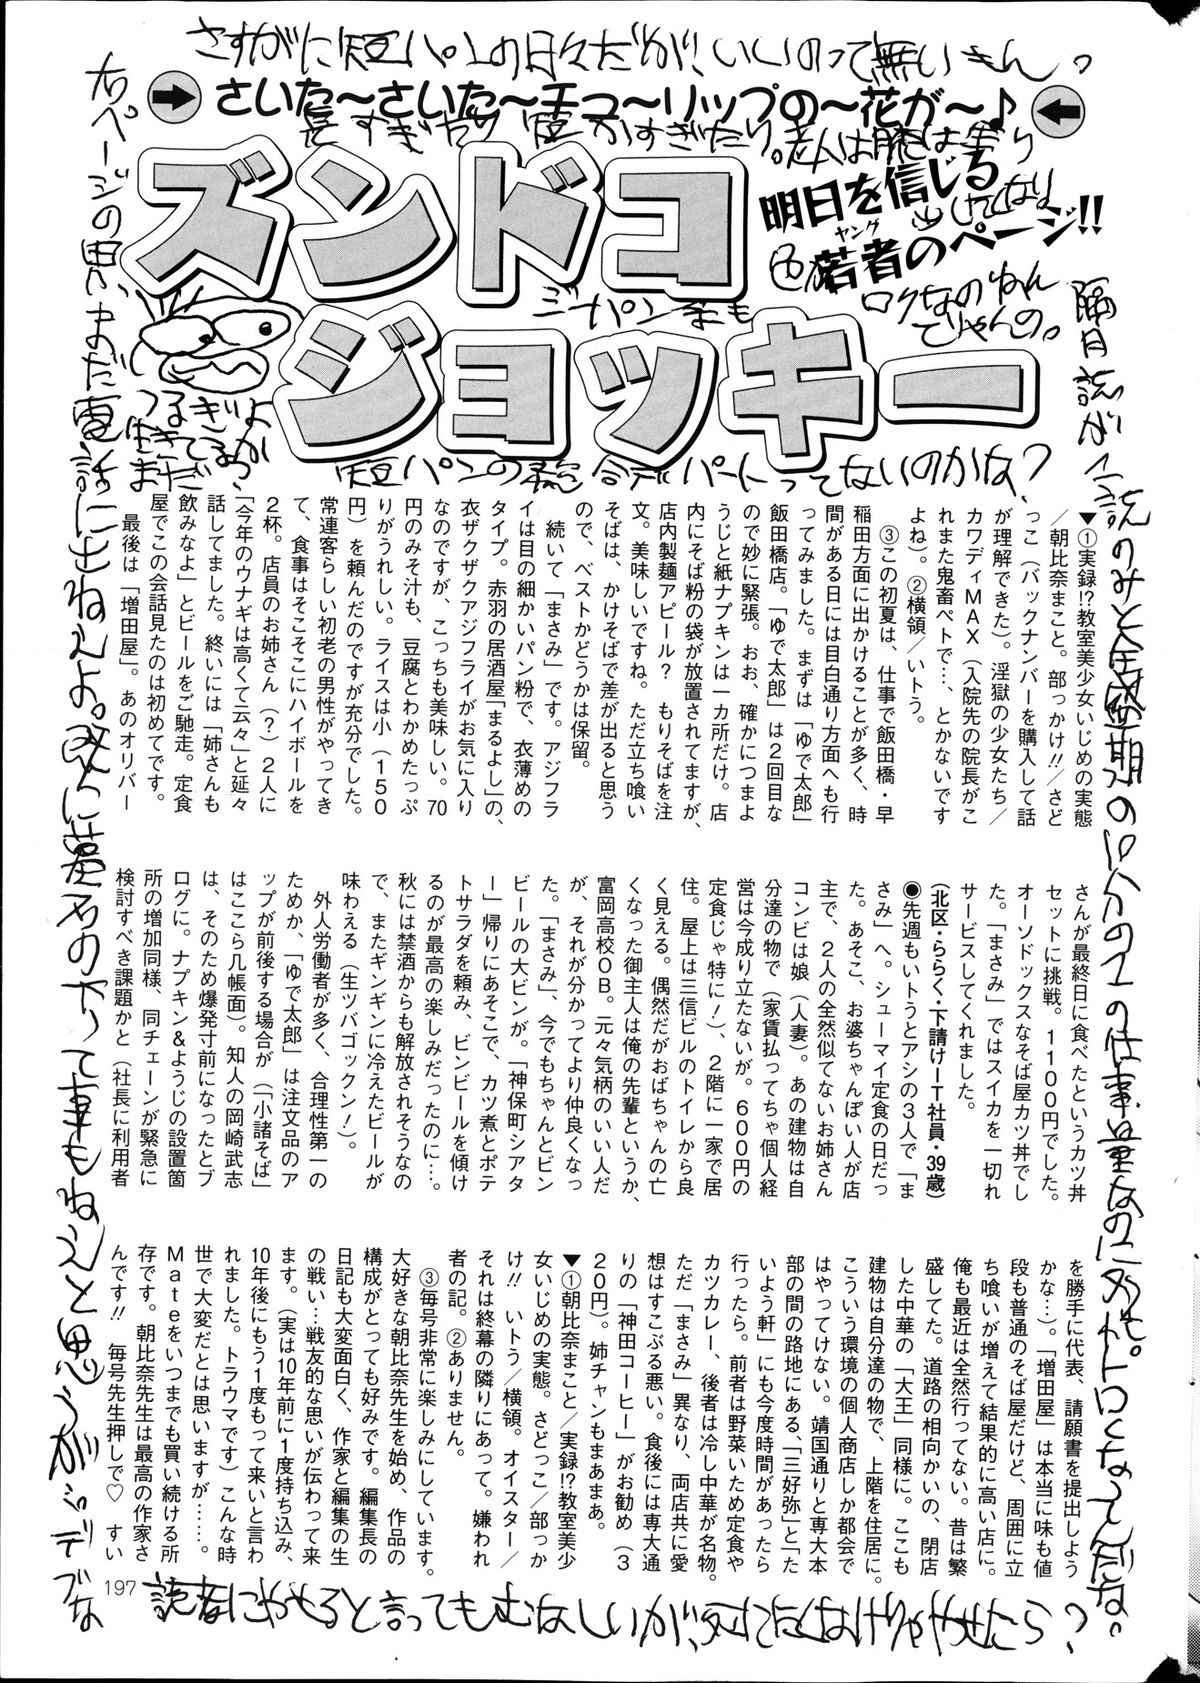 さすがに短パンの日々だが、いいのって無いもん。
さいた〜さいた〜チュ〜リップの〜花が〜♪
長すぎたり短かすぎたり。
ズンドコ
ジョッキー
明日を信じる
ヤング
若者のページ!!
ロクなのねん
でやんの。
まだ
生きてるか?
短パンの総合デパートってないのかな?
▼①実録!?教室美少女いじめの実態
／朝比奈まこと。部っかけ!!／さど
っこ(バックナンバーを購入して話
が理解できた)。淫獄の少女たち／
カワディMAX(入院先の院長がこ
れまた鬼畜ペトで…、とかないです
よね)。②横領／いトう。
③この初夏は、仕事で飯田橋・早
稲田方面に出かけることが多く、時
間がある日には目白通り方面へも行
ってみました。まずは「ゆで太郎」
飯田橋店。「ゆで太郎」は2回目な
ので妙に緊張。おお、確かにつまよ
うじと紙ナプキンは一カ所だけ。店
内にそば粉の袋が放置されてますが、
店内製麺アピール? もりそばを注
文。美味しいですね。ただ立ち喰い
そばは、かけそばで差が出ると思う
ので、ベストかどうかは保留。
続いて「まさみ」です。アジフラ
イは目の細かいパン粉で、衣薄めの
タイプ。赤羽の居酒屋「まるよし」の、
衣ザクザクアジフライがお気に入り
なのですが、こっちも美味しい。70
円のみそ汁も、豆腐とわかめたっぷ
りがうれしい。ライスは小(150
円)を頼んだのですが充分でした。
常連客らしい初老の男性がやってき
て、食事はそこそこにハイボールを
2杯。店員のお姉さん(?)2人に
「今年のウナギは高くて云々」と延々
話してました。終いには「姉さんも
飲みなよ」とビールをご馳走。定食
屋でこの会話見たのは初めてです。
最後は「増田屋」。あのオリバー
さんが最終日に食べたというカツ丼
セットに挑戦。1100円でした。
オーソドックスなそば屋カツ丼でし
た。「まさみ」ではスイカを一切れ
サービスしてくれました。
(北区・ららく・下請けIT社員・39歳)
●先週もいトうとアシの3人で「ま
さみ」へ。シューマイ定食の日だっ
た。あそこ、お婆ちゃんぽい人が店
主で、2人の全然似てないお姉さん
コンビは娘(人妻)。あの建物は自
分達の物で(家賃払ってちゃ個人経
営は今成り立たないが。600円の
定食じゃ特に!)、2階に一家で居
住。屋上は三信ビルのトイレから良
く見える。偶然だがおばちゃんの亡
くなった御主人は俺の先輩というか、
富岡高校OB。元々気柄のいい人だ
が、それが分かってより仲良くなっ
た。「まさみ」、今でもちゃんとビン
ビールの大ビンが。「神保町シアタ
ー」帰りにあそこで、カツ煮とポテ
トサラダを頼み、ビンビールを傾け
るのが最高の楽しみだったのに…。
秋には禁酒からも解放されそうなの
で、またギンギンに冷えたビールが
味わえる(生ツバゴックン!)。
外人労働者が多く、合理性第一の
ためか、「ゆで太郎」は注文品のア
ップが前後する場合が(「小諸そば」
はここら几帳面)。知人の岡崎武志
は、そのため爆発寸前になったとブ
ログに。ナプキン&ようじの設置箇
所の増加同様、同チェーンが緊急に
検討すべき課題かと(社長に利用者
を勝手に代表、請願書を提出しよう
かな…)。「増田屋」は本当に味も値
段も普通のそば屋だけど、周囲に立
ち喰いが増えて結果的に高い店に。
俺も最近は全然行ってない。昔は繁
盛してた。道路の相向かいの、閉店
した中華の「大王」同様に。ここも
建物は自分達の物で、上階を住居に。
こういう環境の個人商店しか都会で
はやってけない。靖国通りと専大本
部の間の路地にある、「三好弥」と「た
いよう軒」にも今度時間があったら
行ったら。前者は野菜いため定食や
カツカレー、後者は冷し中華が名物。
ただ「まさみ」異なり、両店共に愛
想はすこぶる悪い。食後には専大通
りの「神田コーヒー」がお勧め(3
20円)。姉チャンもまあまあ。
▼①朝比奈まこと／実録!?教室美少
女いじめの実態。さどっこ／部っか
け!! いトう／横領。オイスター／
それは終幕の隣りにあって。嫌われ
者の記。②ありません。
③毎号非常に楽しみにしています。
大好きな朝比奈先生を始め、作品の
構成がとっても好みです。編集長の
日記も大変面白く、作家と編集の生
の戦い…戦友的な思いが伝わって来
ます。(実は10年前に1度持ち込み、
10年後にもう1度もって来いと言わ
れました。トラウマです)こんな時
世で大変だとは思いますが……。
Mateをいつまでも買い続ける所
存です。朝比奈先生は最高の作家さ
んです!! 毎号先生押しで♡ すい
197
読者にやせろと言ってもむなしいが、死にたくなけりゃやせたら?